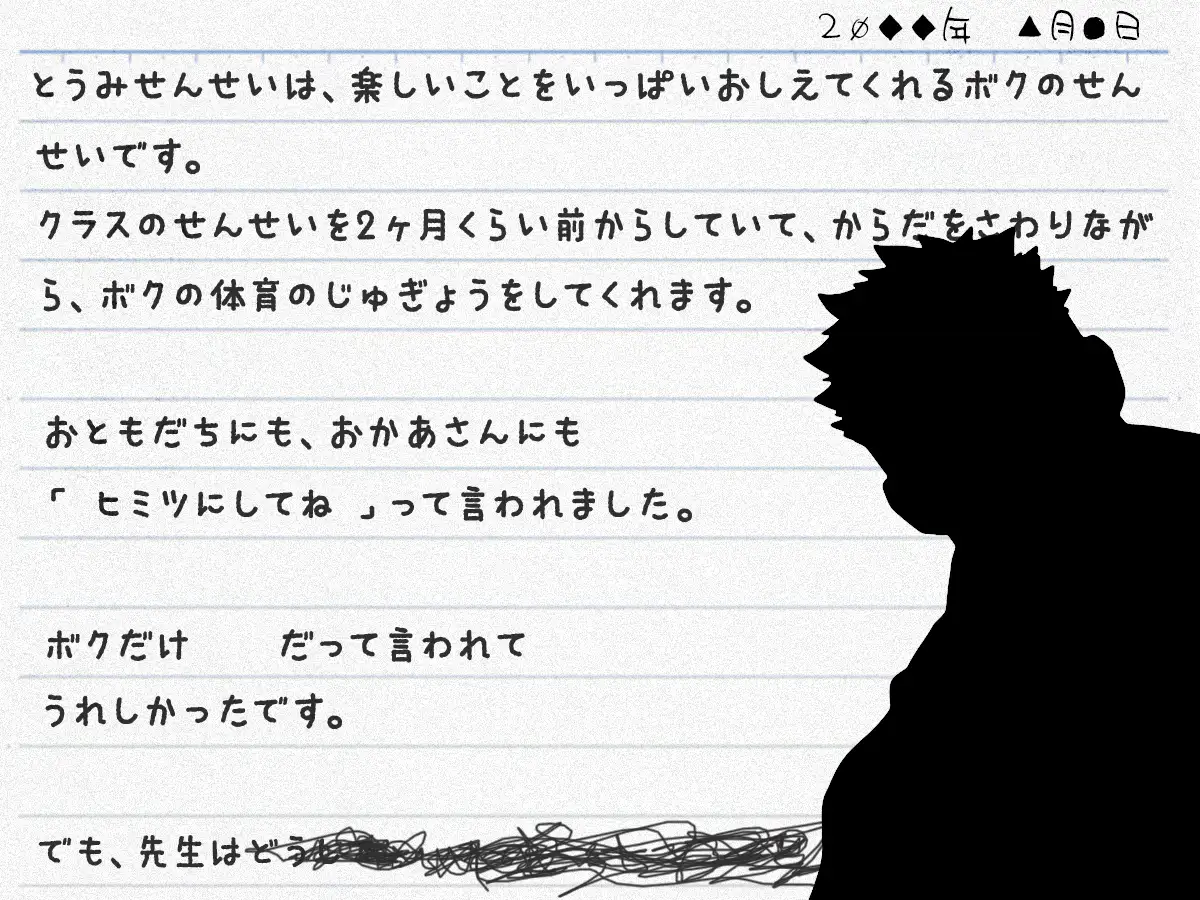 20◆◆年 ▲月●日
とうみせんせいは、楽しいことをいっぱいおしえてくれるボクのせん
せいです。
クラスのせんせいを2ヶ月くらい前からしていて、からだをさわりなが
ら、ボクの体育のじゅぎょうをしてくれます。
おともだちにも、おかあさんにも
「 ヒミツにしてね 」って言われました。
ボクだけ だって言われて
うれしかったです。
でも、先生はどうし